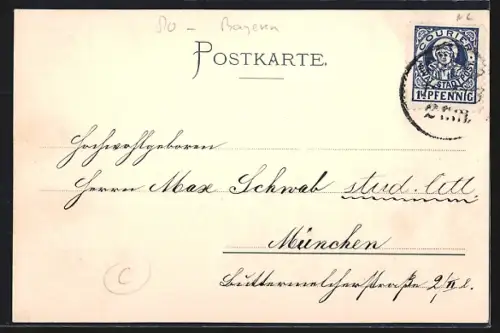 Bayern
POSTKARTE.
COURIER
STADTPOST
1½ PFENNIG
Hochwohlgeboren
Herrn Max Schwab stud. litt.
München
Buttermelcherstraße 2/II r.
C